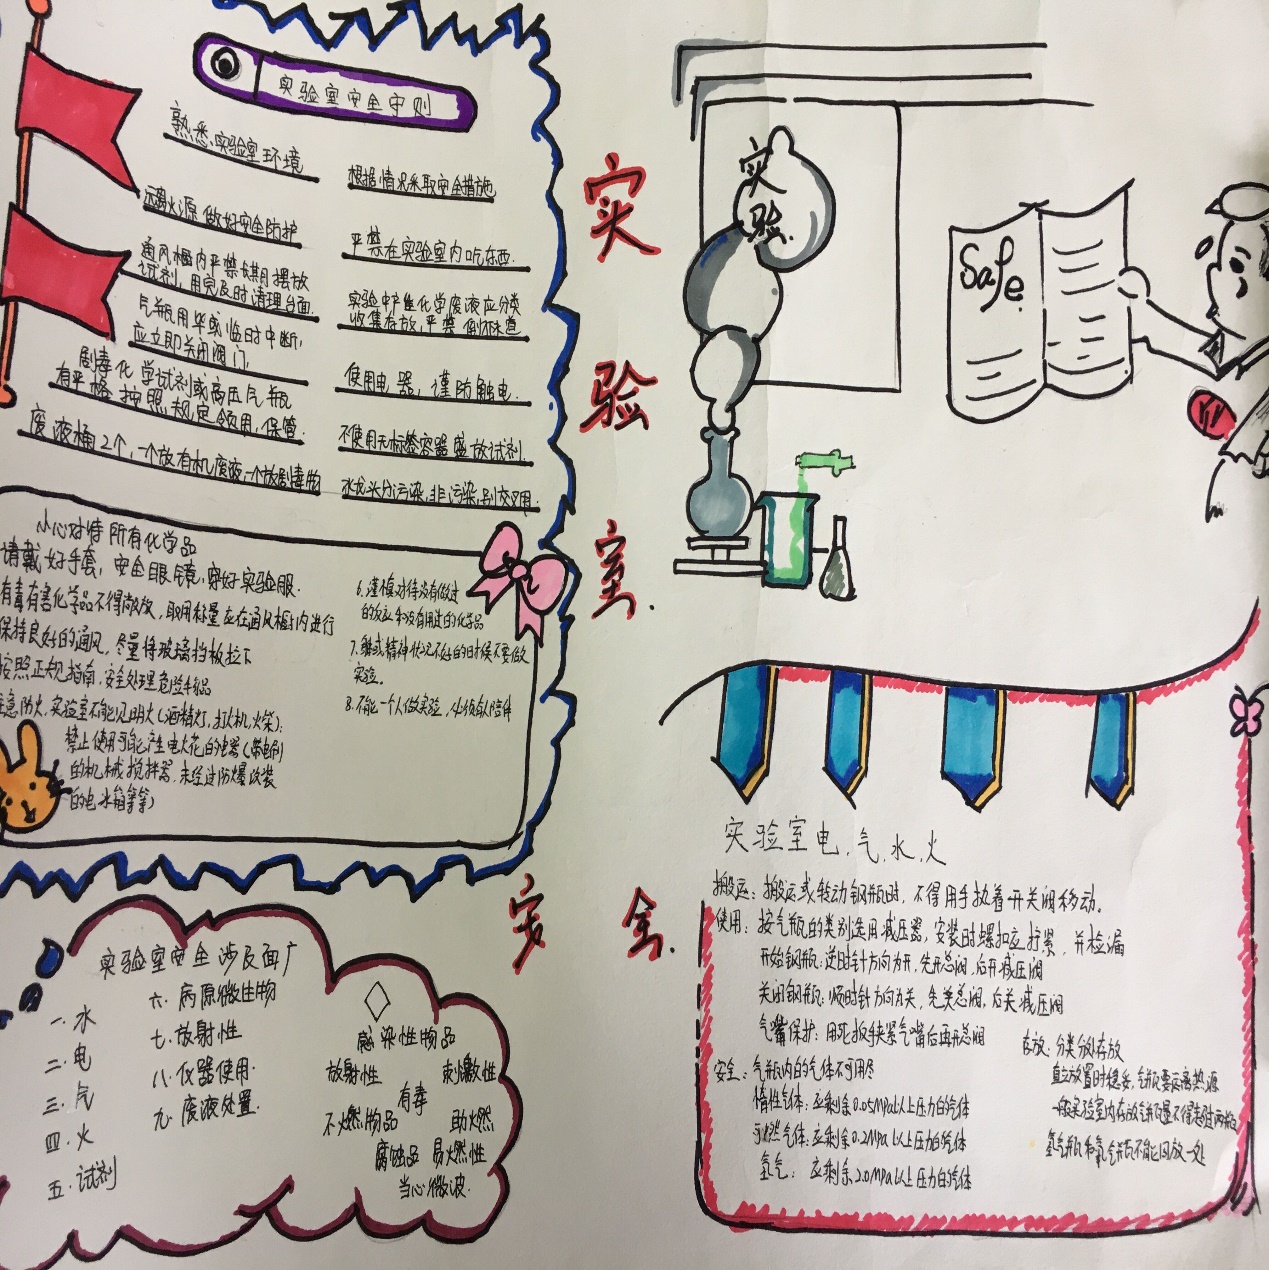 实验室安全守则
熟悉实验室环境
远离火源 做好安全防护
通风橱内严禁摆放
试剂,用完及时清理台面.
气瓶用毕或临时中断,
应立即关闭阀门,
剧毒化学试剂或高压气瓶
有严格按照规定领用,保管.
废液桶2个,一个放有机废液,一个放剧毒物
根据情况采取安全措施
严禁在实验室内吃东西.
实验中产生化学废液应分类
收集存放,严禁倒下水道
使用电器,谨防触电.
不使用无标签容器盛放试剂.
水龙头分污染,非污染,别交叉用.
小心对待所有化学品
请戴好手套,安全眼镜,穿好实验服.
有毒有害化学品不得敞放,取用称量应在通风橱内进行
保持良好的通风,尽量将玻璃挡板拉下
按照正规指南,安全处理危险样品
防火,实验室不能见明火(酒精灯,打火机,火柴);
禁止使用可能产生电火花的电器(带电刷
的机械搅拌器,未经过防爆改装
的电冰箱等等)
6.谨慎对待没有做过
的反应和没有用过的化学品
7.身体或精神状况不好的时候不要做
实验。
8.不能一个人做实验,必须有人陪伴
实验室安全涉及面广
一.水
二.电
三.气
四.火
五.试剂
六.病原微生物
七.放射性
八.仪器使用.
九.废液处置.
感染性物品
放射性 刺激性
有毒
不燃物品 助燃
腐蚀品 易燃性
当心微波.
实
验
室.
安 全.
实
验.
Safe.
实验室电.气.水.火
搬运:搬运或转动钢瓶时,不得用手执着开关阀移动。
使用:按气瓶的类别选用减压器,安装时螺扣应拧紧,并检漏
开始钢瓶:逆时针方向为开,先开总阀,后开减压阀
关闭钢瓶:顺时针方向为关,先关总阀,后关减压阀
气嘴保护:用死扳手夹紧气嘴后再开总阀
安全:气瓶内的气体不可用尽
惰性气体:应剩余0.05MPa以上压力的气体
可燃气体:应剩余0.2MPa以上压力的气体
氢气:应剩余2.0MPa以上压力的气体
存放:分类分处存放
直立放置时稳妥,气瓶要远离热源
一般实验室内存放气瓶量不得超过两瓶
氢气瓶和氧气瓶不能同放一处